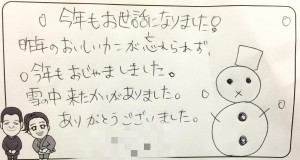 今年もお世話になりました!
昨年のおいしいカニを忘れられず、
今年もおじゃましました。
雪の中来たかいがありました。
ありがとうございました。